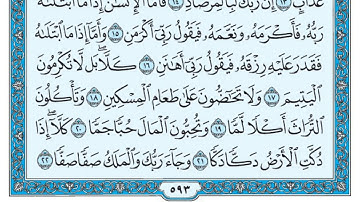 عَذَابٍ ١٣ إِنَّ رَبَّكَ لَبِٱلْمِرْصَادِ ١٤ فَأَمَّا ٱلْإِنسَٰنُ إِذَا مَا ٱبْتَلَىٰهُ
رَبُّهُۥ فَأَكْرَمَهُۥ وَنَعَّمَهُۥ فَيَقُولُ رَبِّىٓ أَكْرَمَنِ ١٥ وَأَمَّآ إِذَا مَا ٱبْتَلَىٰهُ
فَقَدَرَ عَلَيْهِ رِزْقَهُۥ فَيَقُولُ رَبِّىٓ أَهَٰنَنِ ١٦ كَلَّا ۖ بَل لَّا تُكْرِمُونَ
ٱلْيَتِيمَ ١٧ وَلَا تَحَٰٓضُّونَ عَلَىٰ طَعَامِ ٱلْمِسْكِينِ ١٨ وَتَأْكُلُونَ
ٱلتُّرَاثَ أَكْلًا لَّمًّا ١٩ وَتُحِبُّونَ ٱلْمَالَ حُبًّا جَمًّا ٢٠ كَلَّآ إِذَا
دُكَّتِ ٱلْأَرْضُ دَكًّا دَكًّا ٢١ وَجَآءَ رَبُّكَ وَٱلْمَلَكُ صَفًّا صَفًّا ٢٢
٥٩٣